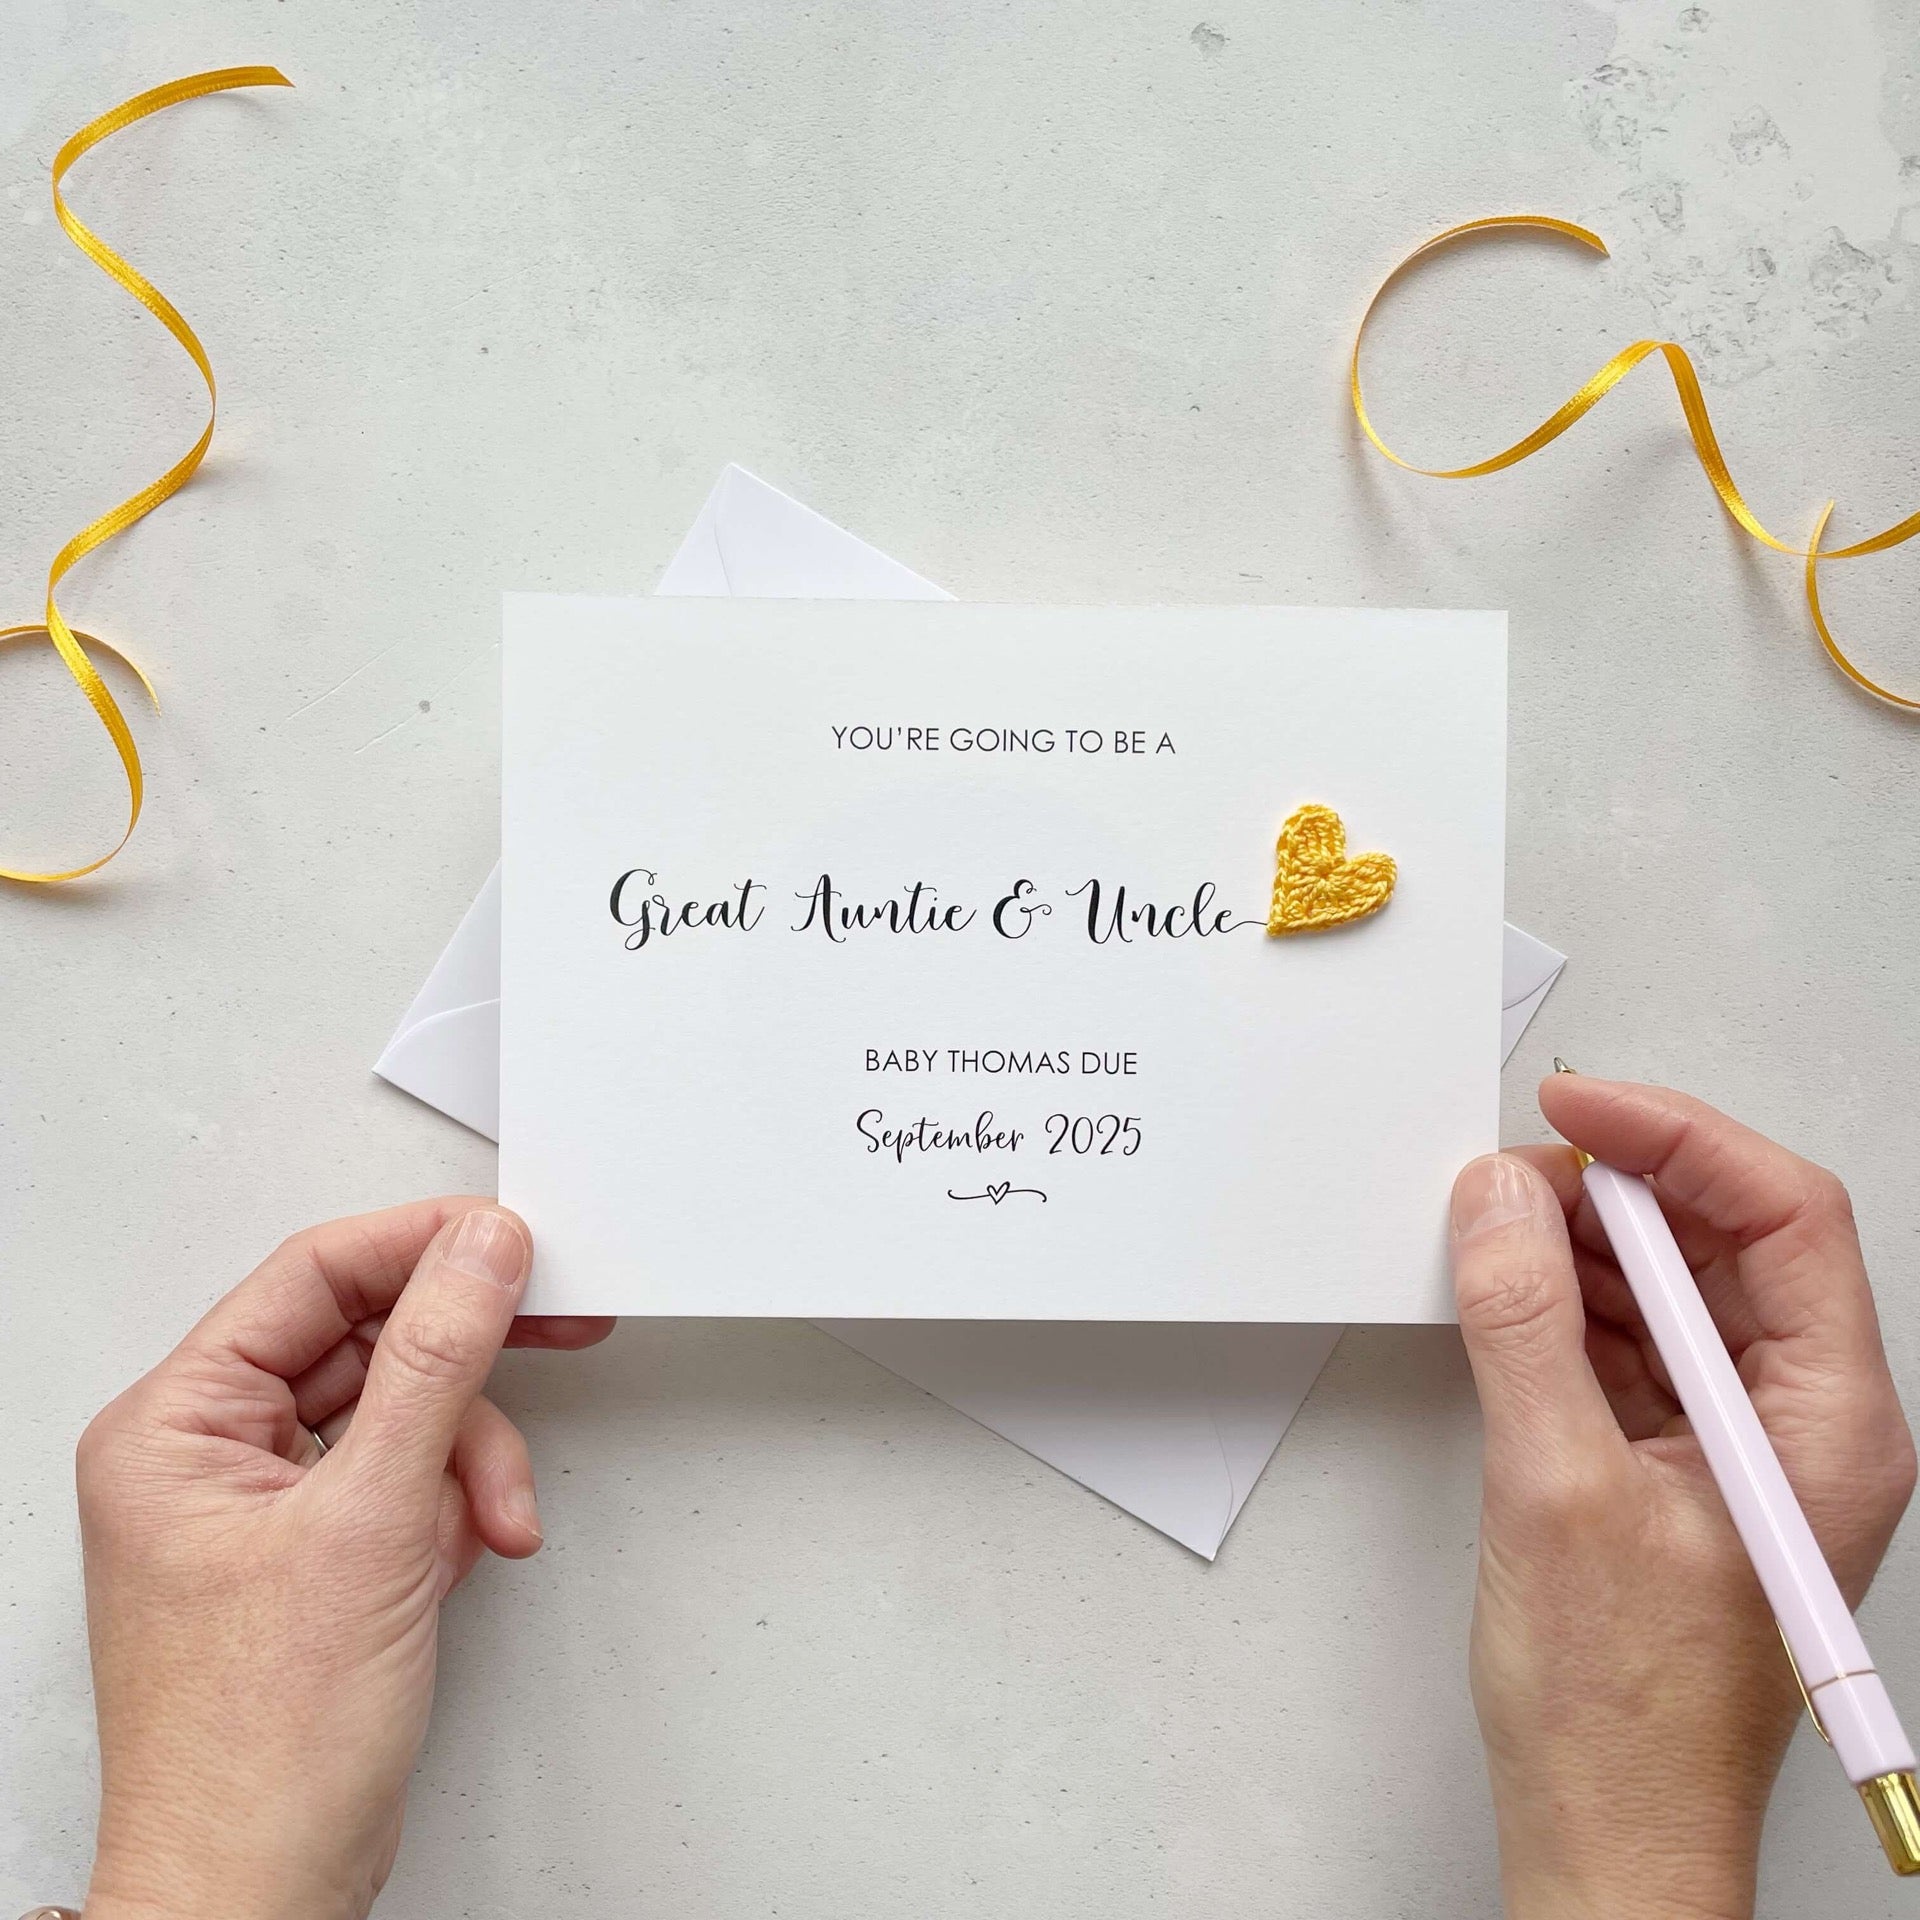 YOU'RE GOING TO BE A
Great Auntie & Uncle
BABY THOMAS DUE
September 2025